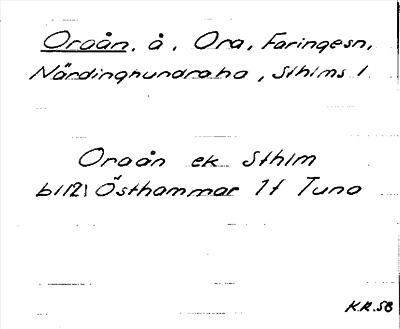 Oraån, å, Ora, Faringe sn,
Närdinghundra hd, Sthlms l.
Oraån ek Sthlm
bl 121 Östhammar 1 f Tuna
K.R. 58